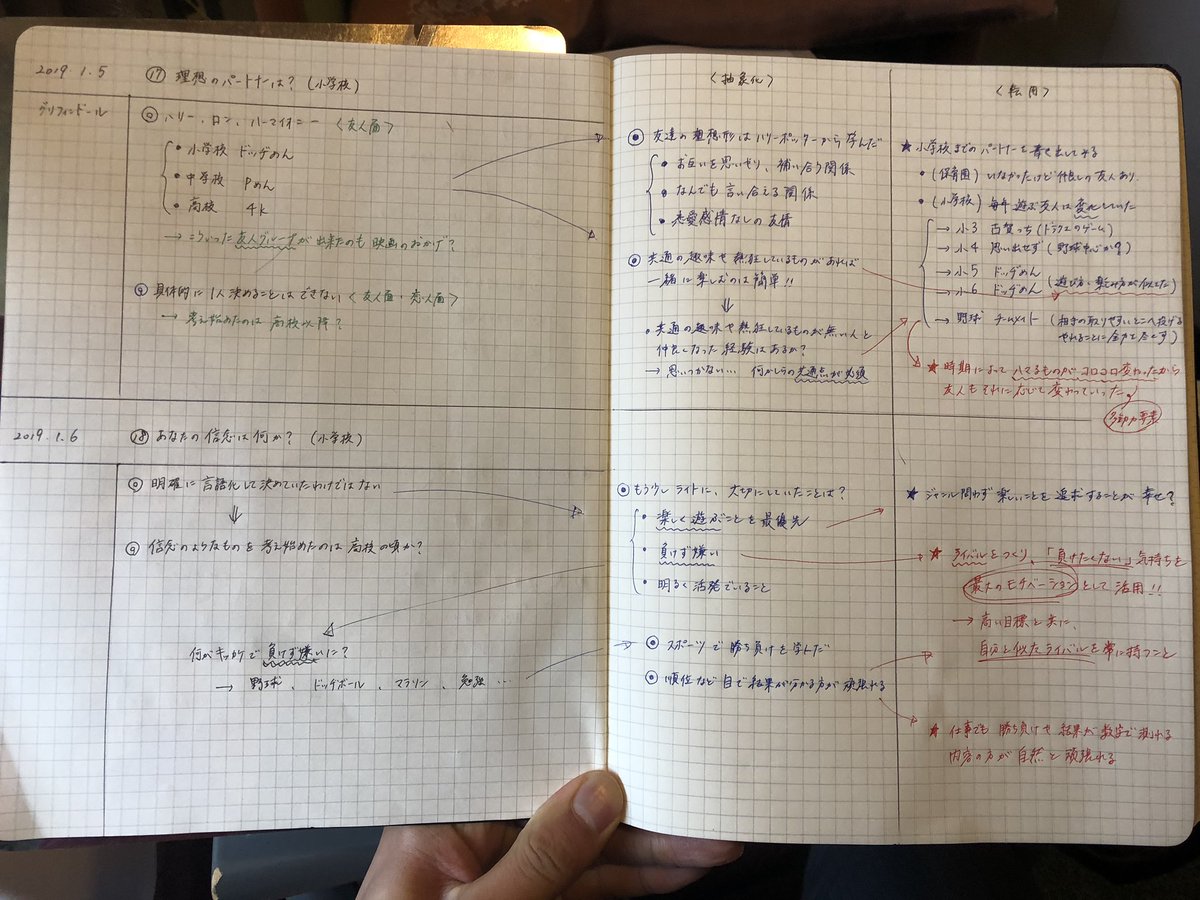 2019.1.5
⑰ 理想のパートナーは? (小学校)
グリフィンドール
ハリー、ロン、ハーマイオニー 〈友人面〉
・小学校 ドッヂめん
・中学校 Pめん
・高校 4k
→ こういった友人グループが出来たのも映画のおかげ?
具体的に1人決めることはできない 〈友人面・恋人面〉
→ 考え始めたのは高校以降?
2019.1.6
⑱ あなたの信念は何か? (小学校)
明確に言語化して決めていたわけではない
⇓
信念のようなものを考え始めたのは高校の頃か?
何がキッカケで負けず嫌いに?
→ 野球、ドッチボール、マラソン、勉強…
〈抽象化〉
友達の理想形はハリーポッターから学んだ
・お互いを思いやり、補い合う関係
・なんでも言い合える関係
・恋愛感情なしの友情
共通の趣味や熱狂しているものがあれば
一緒に楽しむのは簡単!!
⇓
・共通の趣味や熱狂しているものが無い人と
仲良くなった経験はあるか?
→ 思いつかない… 何かしらの共通点が必須
もう少しライトに、大切にしていたことは?
・楽しく遊ぶことを最優先
・負けず嫌い
・明るく活発でいること
スポーツで勝ち負けを学んだ
順位など目で結果が分かる方が頑張れる
〈転用〉
★小学校までのパートナーを書き出してみる
・(保育園) いなかったけど仲良しの友人あり.
・(小学校) 毎年遊ぶ友人は変化していた
→ 小3 古賀っち (ドラクエのゲーム)
→ 小4 思い出せず (野球中心か?)
→ 小5 ドッヂめん
→ 小6 ドッヂめん (遊び方・楽しみ方が似てた)
→ 野球 チームメイト (相手の取りやすいとこへ投げる
やれることに全力を尽くす)
★時期によってハマるものがコロコロ変わったから
友人もそれに応じて変わっていった。
多動力要素
★ジャンル問わず楽しいことを追求することが幸せ?
★ライバルをつくり、「負けたくない」気持ちを
最大のモチベーションとして活用!!
→ 高い目標と共に、
自分と似たライバルを常に持つこと
★仕事でも勝ち負けや結果が数字で測れる
内容の方が自然と頑張れる